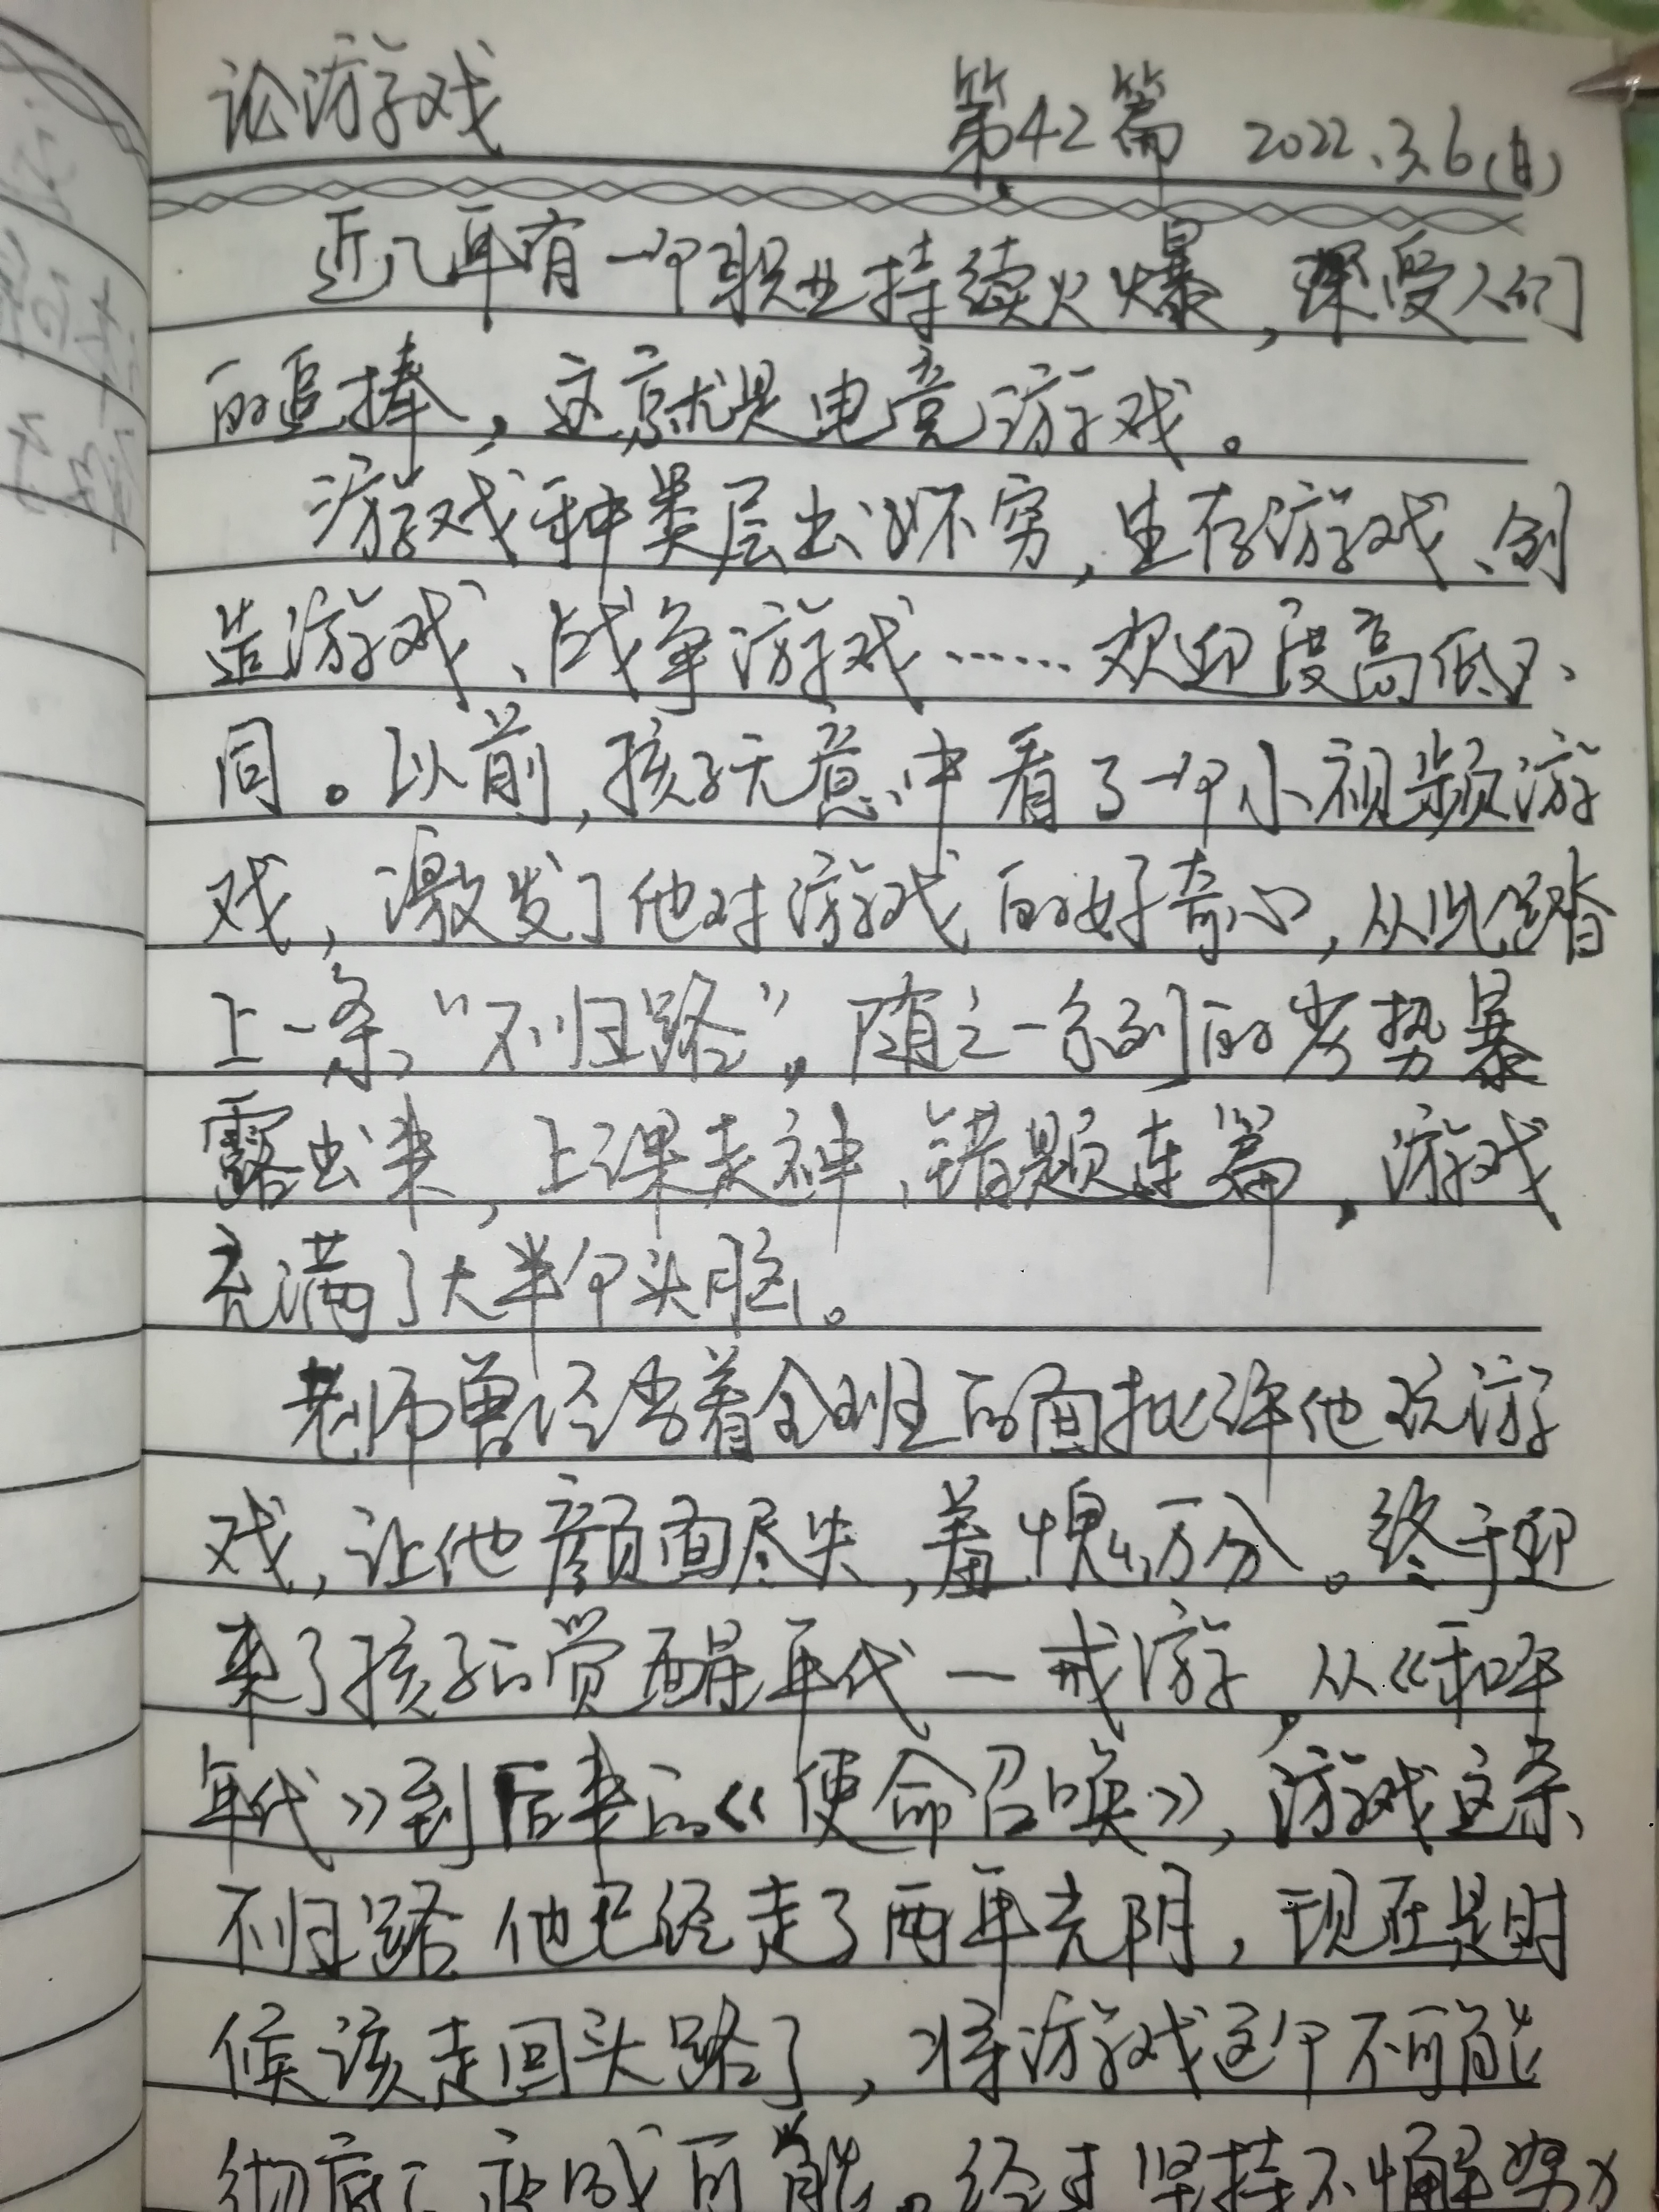 论游戏 第42篇 2022.3.6(日)
近几年有一个职业持续火爆,深受人们
的追捧,这就是电竞游戏。
游戏种类层出不穷,生存游戏、创
造游戏、战争游戏……欢迎度高低不
同。以前,孩子无意中看了一个小视频游
戏,激发了他对游戏的好奇心,从此踏
上一条“不归路”。随之一系列的劣势暴
露出来,上课走神、错题连篇,游戏
充满了大半个头脑。
老师曾经当着全班的面批评他玩游
戏,让他颜面尽失,羞愧万分。终于迎
来了孩子的觉醒年代—戒游,从《和平
年代》到后来的《使命召唤》,游戏这条
不归路他已经走了两年光阴,现在是时
候该走回头路了,将游戏这个不可能
彻底变成可能。经过坚持不懈努力